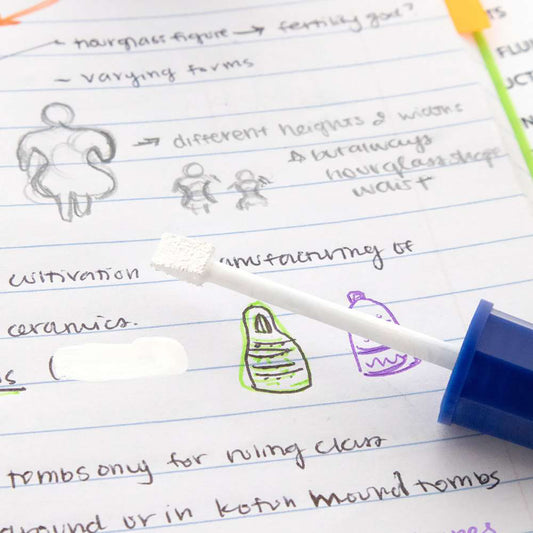 ~ hourglass figure → fertility god?
~ varying forms
→ different heights & widths
but always
hourglass shape
waist
cultivation
manufacturing of
ceramics.
(
tombs only for ruling class
ground or in kofun mound tombs
TS
FLU
UCT
N